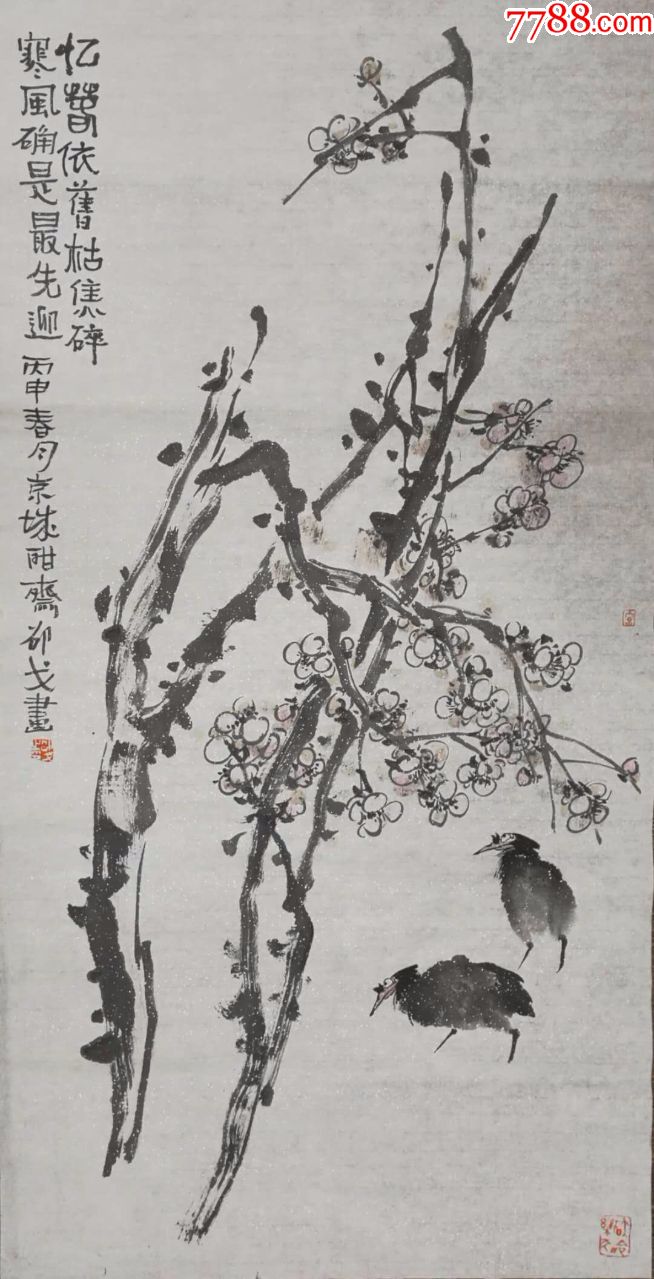 7788.com
忆依舊枯焦碎
寒風确是最先迎 丙申春月京城酣齋邵戈畫